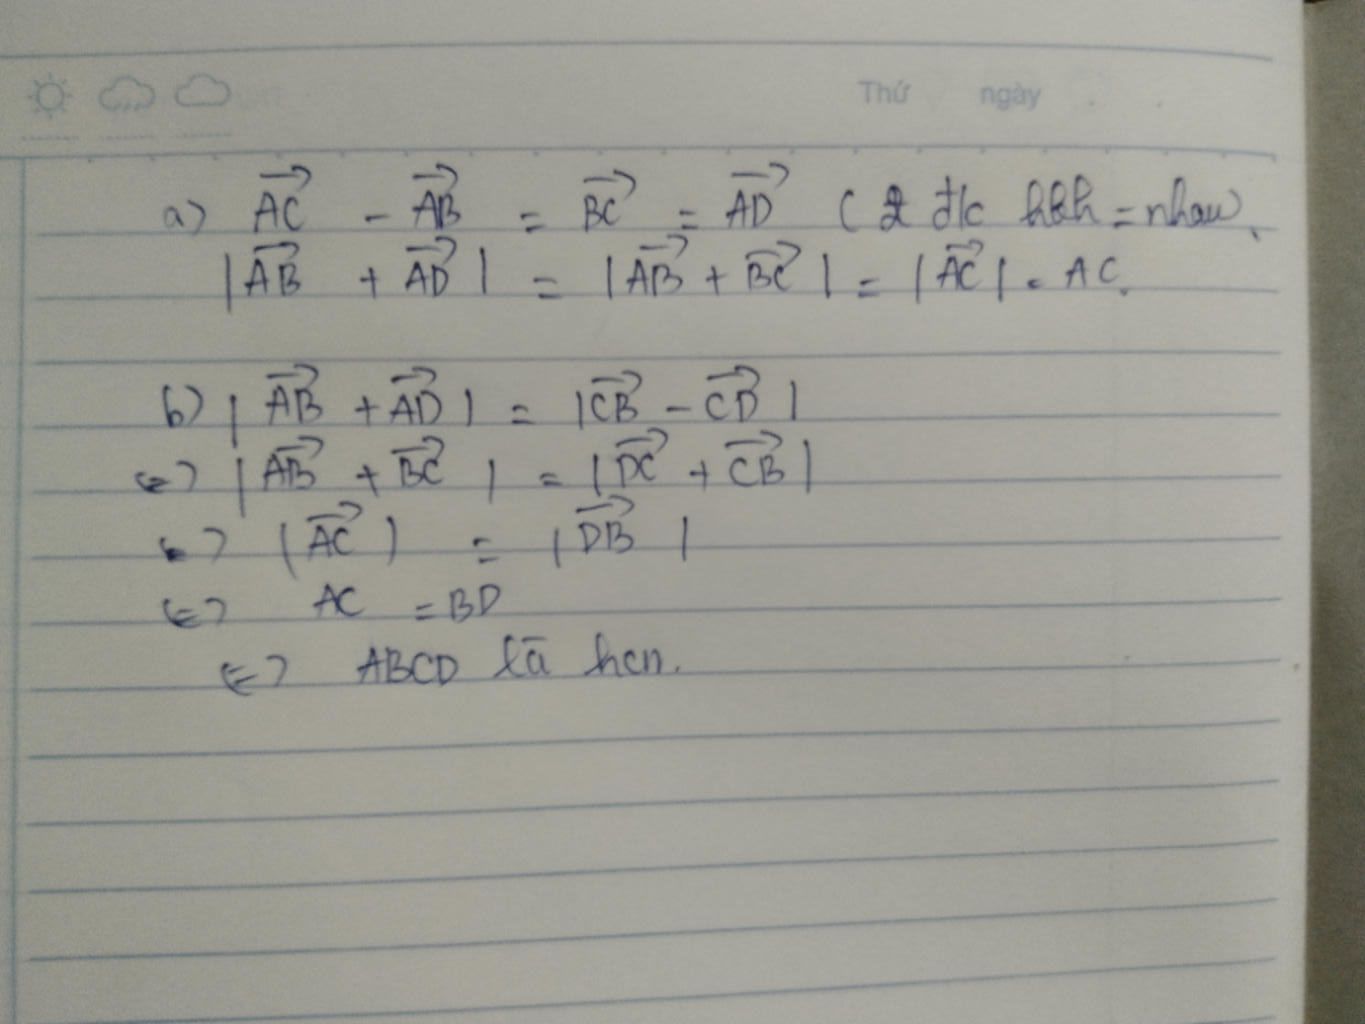 Thứ ngày
a) $\overrightarrow{AC} - \overrightarrow{AB} = \overrightarrow{BC} = \overrightarrow{AD}$ ( 2 đ/c hbh = nhau.
$|\overrightarrow{AB} + \overrightarrow{AD}| = |\overrightarrow{AB} + \overrightarrow{BC}| = |\overrightarrow{AC}| = AC.$
b) $|\overrightarrow{AB} + \overrightarrow{AD}| = |\overrightarrow{CB} - \overrightarrow{CD}|$
<=> $|\overrightarrow{AB} + \overrightarrow{BC}| = |\overrightarrow{DC} + \overrightarrow{CB}|$
<=> $|\overrightarrow{AC}| = |\overrightarrow{DB}|$
<=> AC = BD
<=> ABCD là hcn.